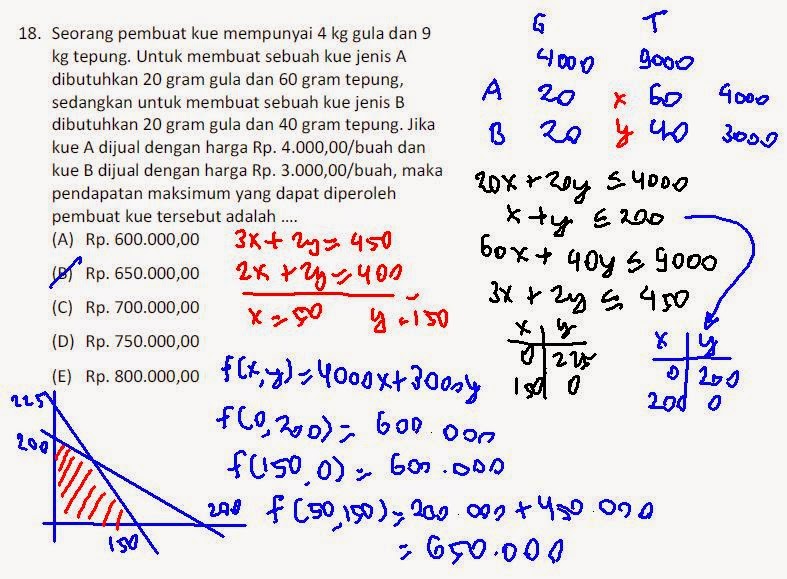 18. Seorang pembuat kue mempunyai 4 kg gula dan 9
kg tepung. Untuk membuat sebuah kue jenis A
dibutuhkan 20 gram gula dan 60 gram tepung,
sedangkan untuk membuat sebuah kue jenis B
dibutuhkan 20 gram gula dan 40 gram tepung. Jika
kue A dijual dengan harga Rp. 4.000,00/buah dan
kue B dijual dengan harga Rp. 3.000,00/buah, maka
pendapatan maksimum yang dapat diperoleh
pembuat kue tersebut adalah ....
(A) Rp. 600.000,00
(B) Rp. 650.000,00
(C) Rp. 700.000,00
(D) Rp. 750.000,00
(E) Rp. 800.000,00
G T
4000 9000
A 20 x 60 4000
B 20 y 40 3000
20x + 20y ≤ 4000
x + y ≤ 200
60x + 40y ≤ 9000
3x + 2y ≤ 450
x y
0 225
150 0
x y
0 200
200 0
3x + 2y = 450
2x + 2y = 400
x = 50 y = 150
f(x,y) = 4000x + 3000y
f(0,200) = 600.000
f(150,0) = 600.000
f(50,150) = 200.000 + 450.000
= 650.000
225
200
150
200